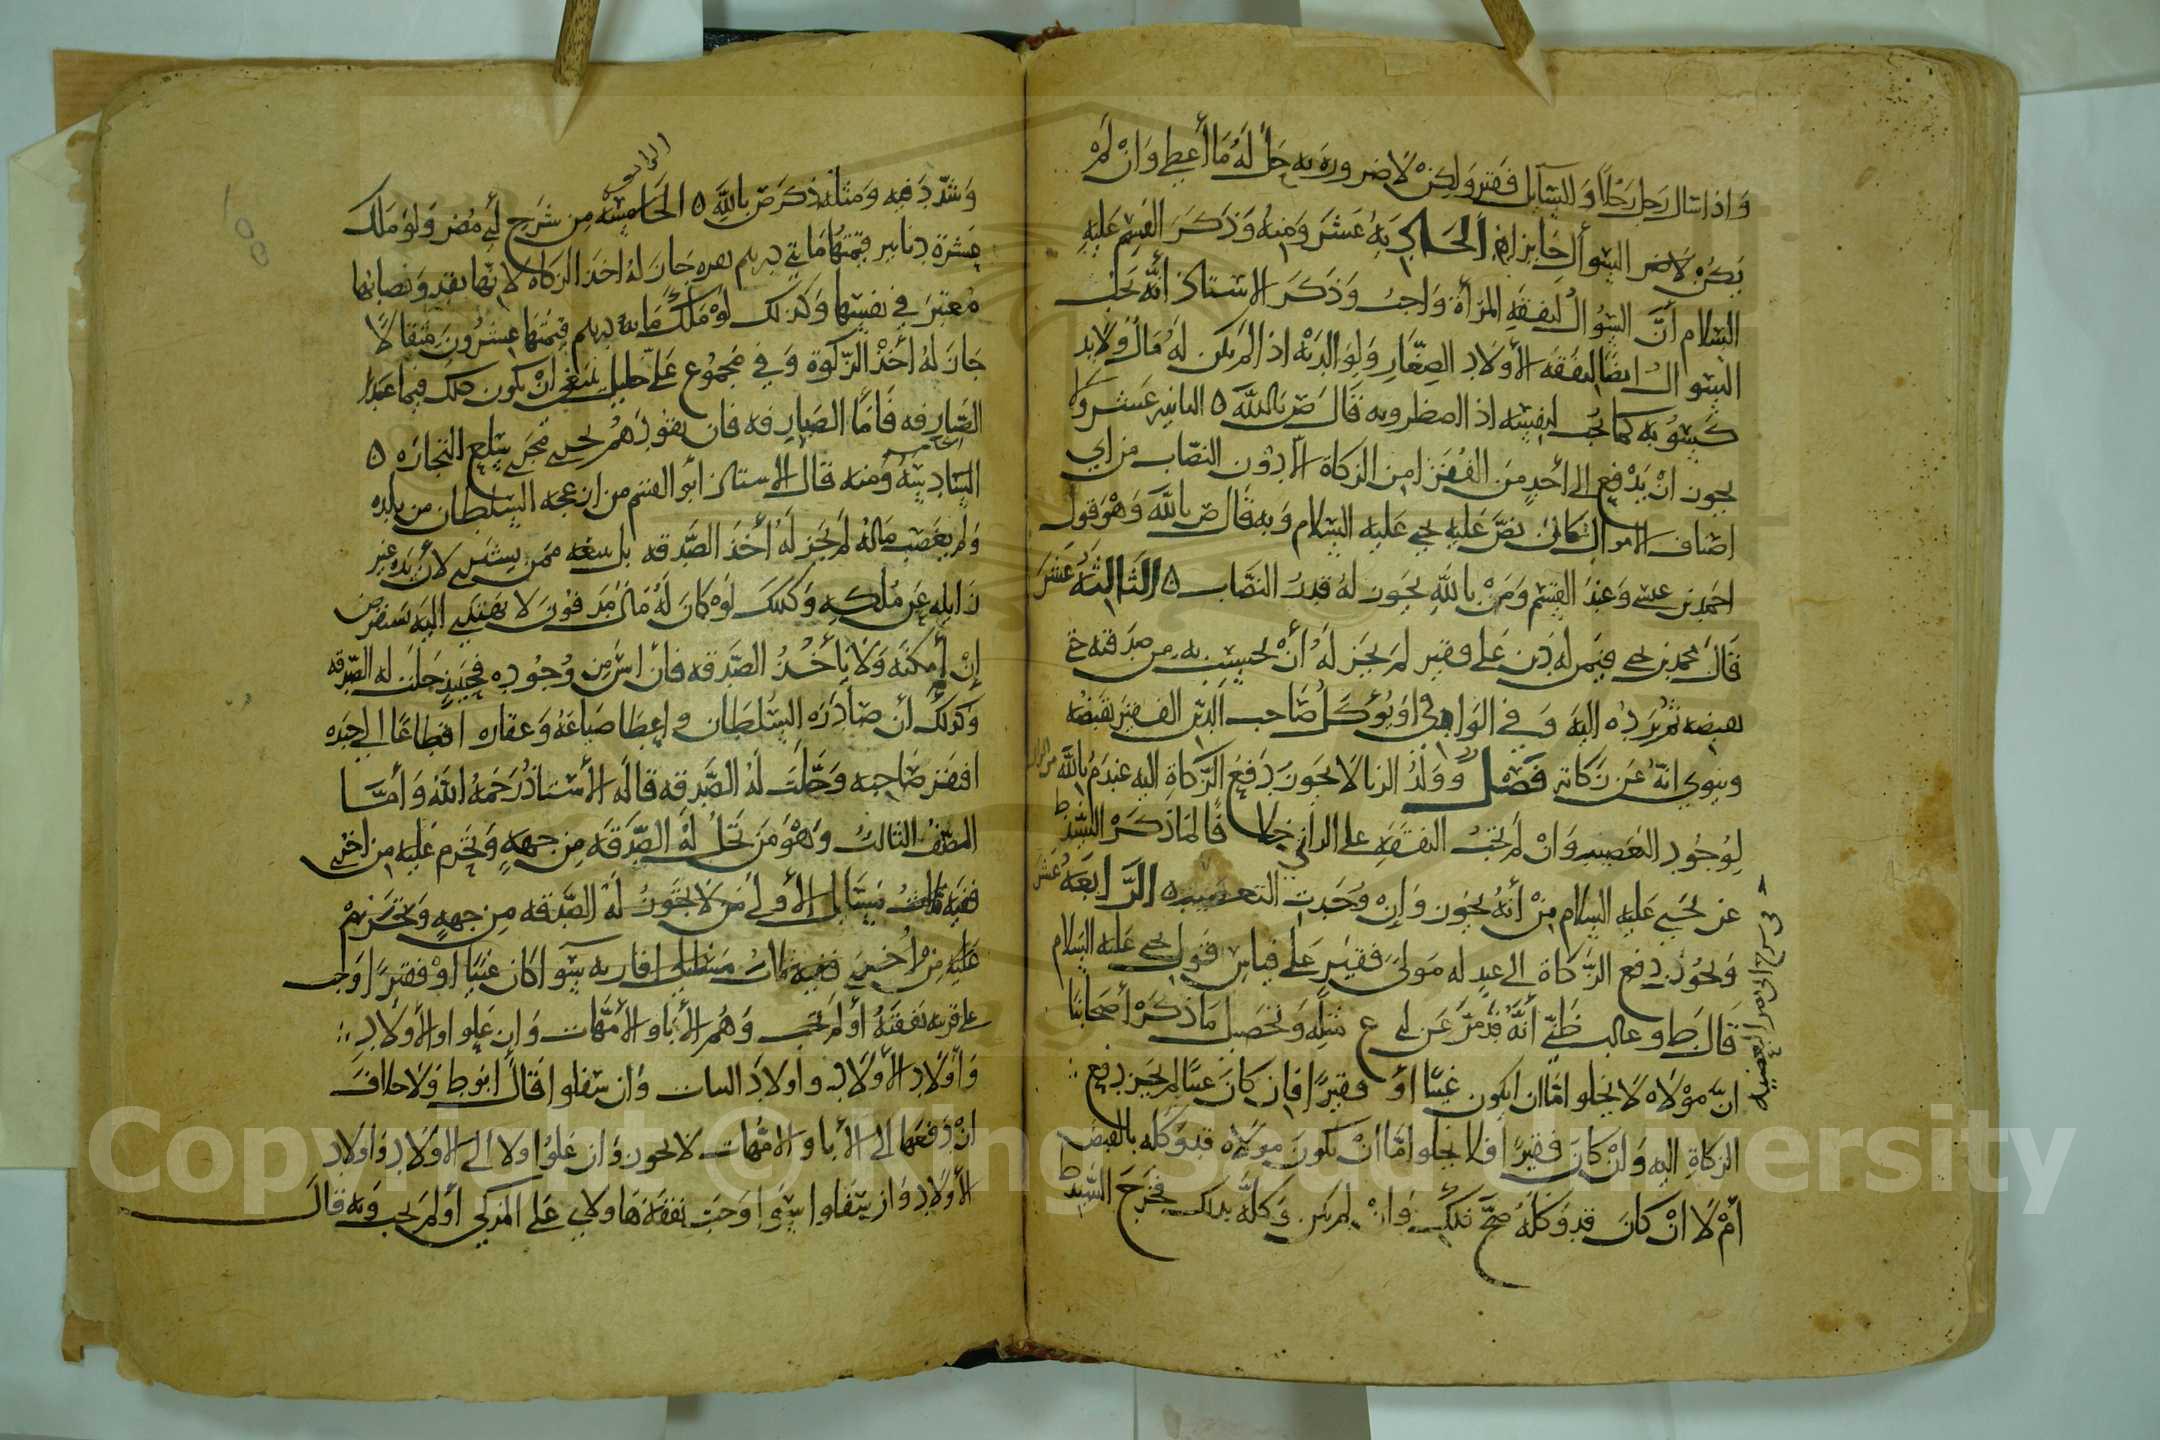 واذا سال رجل رجلا وللسايل فقير ولكن لا ضرورة به حل له ما أعطي وان لم
يكن لاضر السؤال جايزا الحادية عشر ومنه وذكر القسم عليه
السلام أن السؤال لنفقه المرأة واجب وذكر الاستاذ أنه يجب
السؤال ايضا لنفقه الأولاد الصغار ولوالديه اذا لم يكن له مال ولا بد
كسوه كما يجب لنفسه اذا اضطر وبه قال ص بالله ه الثانية عشر ولا
يجوز ان يدفع الى أحد من الفقرا من الزكاة الا دون النصاب من اي
اصناف الاموال كان نص عليه يحي عليه السلام وبه قال ص بالله وهو قول
احمد بن عيسى وعند القسم ومن بالله يجوز له قدر النصاب ه الثالثة عشر
قال محمد بن يحي فيمن له دين على فقير لم يجز له أن يحتسب به من صدقته حتى
يقبضه ثم يرده اليه وفي الوافي او يوكل صاحب الدين الفقير بقبضه
وينوي انه عن زكاته فصل وولد الزنا لا يجوز دفع الزكاة اليه عند م بالله
لوجود التعصيب وان لم تجب النفقه على الزاني خلافا لما ذكره السيد ط
عن يحيى عليه السلام من أنه يجوز وإن وجدت التعصيب ه الرابعة عشر
ويجوز دفع الزكاة الى عبد له مولى فقير على قياس قول يحي عليه السلام
قال ط وغالب ظني أنه قد مر عن لي ع مثله وتحصيل ما ذكره أصحابنا
ان مولاه لا يخلو اما ان يكون غنيا أو فقيرا فان كان غنيا لم يجز دفع
الزكاة اليه وان كان فقيرا فلا يخلو اما ان يكون مولاه قد وكله بالقبض
أم لا ان كان قد وكله صح ذلك وان لم يكن وكله بذلك فخرج السيد ط
وشدد فيه ومثله ذكر ص بالله ه الخامسة من شرح لي مضر ولو ملك
عشرة دنانير قيمتها مايتي درهم نقره جاز له اخذ الزكاة لانها نقد ونصابها
معتبر في نفسها وكذلك لو ملك مايه درهم قيمتها عشرون مثقالا
جاز له أخذ الزكوة وفي مجموع علي خليل ينبغي ان يكون ذلك فيما عدا
الصيارفه فاما الصيارفه فان نقودهم يجري مجرى سلع التجاره ه
السادسة ومنه قال الاستاذ أبو القسم من ازعجه السلطان من بلده
ولم يغصب ماله لم يجز له أخذ الصدقه بل ممن لأن يده غير
زايله عن ملكه وكذلك لو كان له مال مدفون لا يهتدي اليه يستقرض
إن أمكنه ولا يأخذ الصدقه فان اس من وجوده فحينئذ حلت له الصدقه
وكذلك أن صادره السلطان و اعطا ضياعه وعقاره اقطاعا الى جنده
افتقر صاحبه وحلت له الصدقه قاله الأستاذ رحمه الله وأما
الصنف الثالث وهو من تحل له الصدقة من جهة وتحرم عليه من اخرى
ففيه ثلاث مسايل الأولى من لا يجوز له الصدقه من جهة وتحرم
عليه من أخرى ففيه ثلاث اقاربه سوا كان غنيا أو فقيرا وجب
على قريبه نفقته أو لم تجب وهم الأبا والأمهات وان علوا والأولاد
وأولاد الأولاد وأولاد البنات وان سفلوا قال ابوط ولا خلاف
ان دفعها الى الأبا والامهات لا يجوز وان علوا ولا الى الأولاد واولاد
الأولاد وان سفلوا سوا وجبت نفقة هاولاي على المزكي أو لم تجب وبه قال